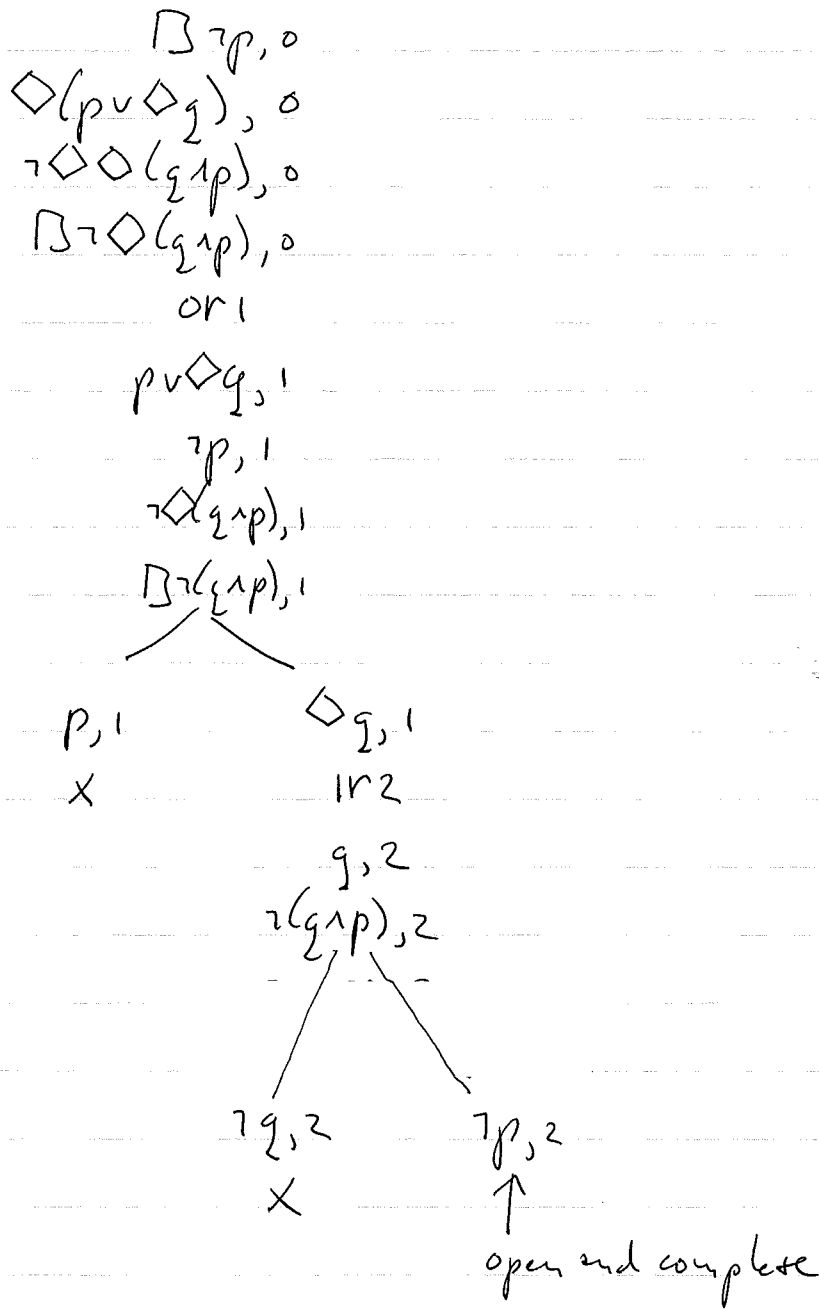 □¬p, 0
◇(p∨◇q), 0
¬◇◇(q∧p), 0
□¬◇(q∧p), 0
0r1
p∨◇q, 1
¬p, 1
¬◇(q∧p), 1
□¬(q∧p), 1
p, 1 ◇q, 1
× 1r2
q, 2
¬(q∧p), 2
¬q, 2 ¬p, 2
× ↑
open and complete